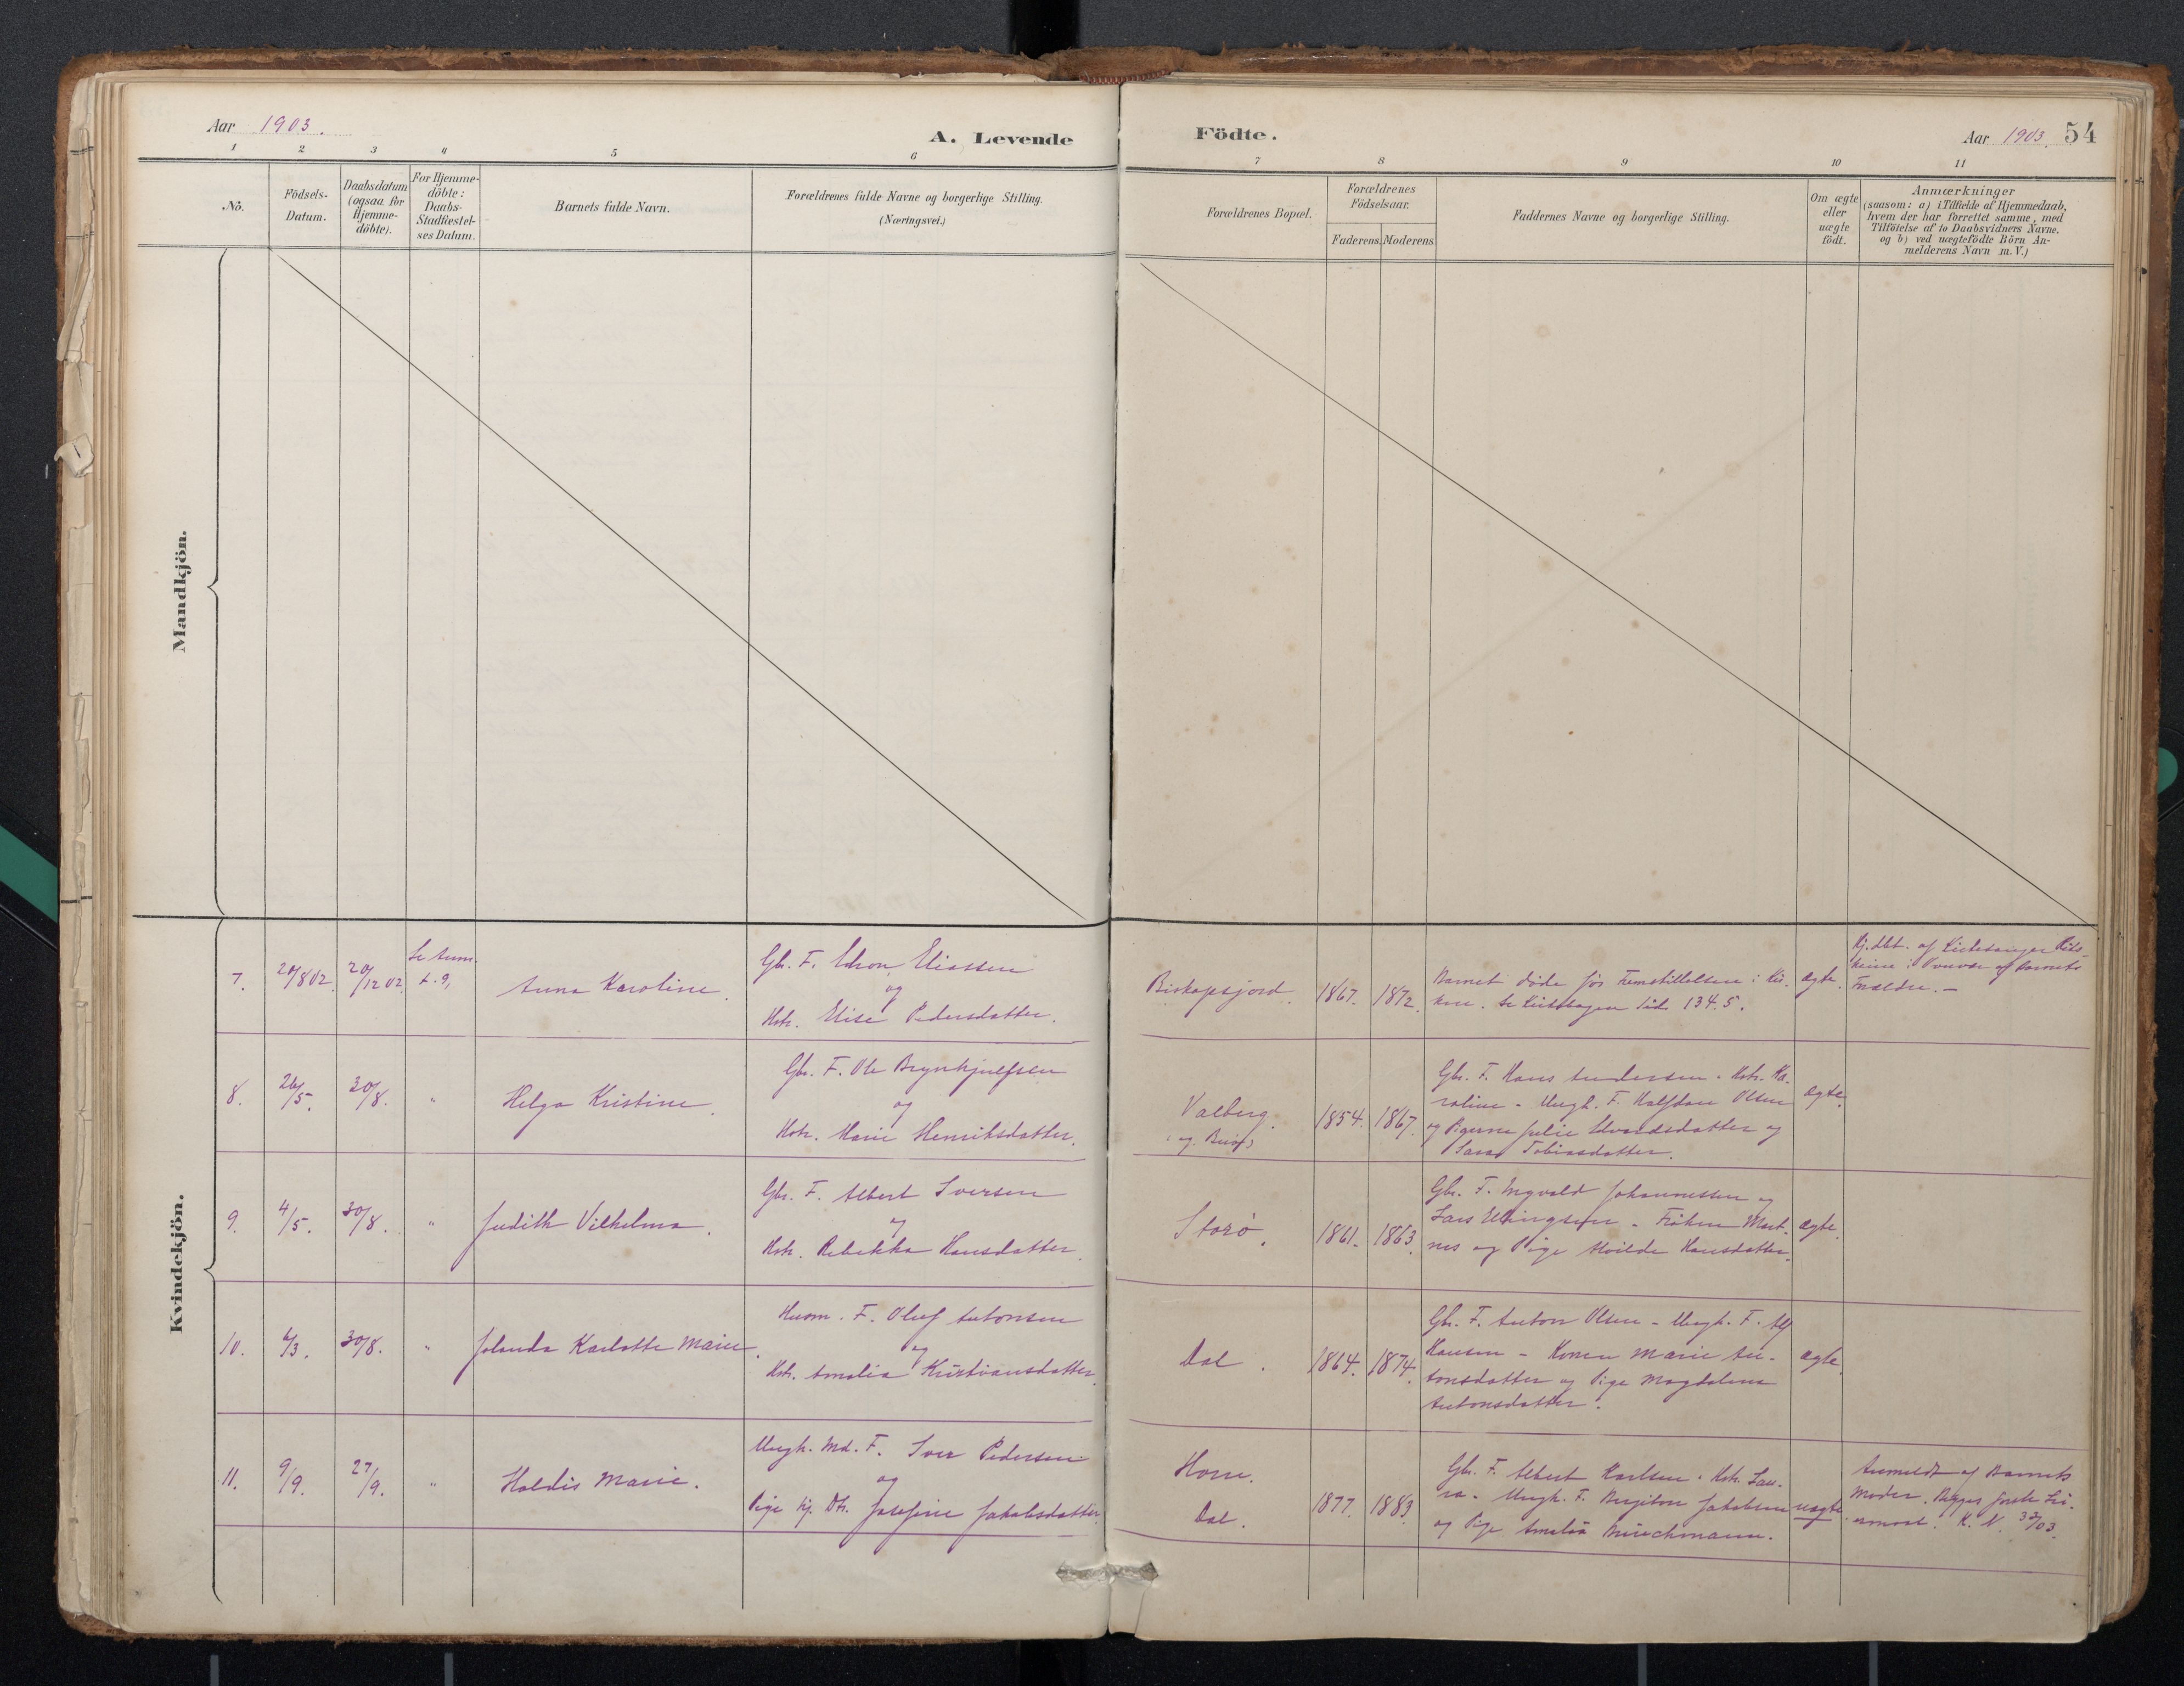 Aar 1903.
A. Levende
Födte.
Aar 1903. 54
1 2 3 4 5 6 7 8 9 10 11
No.
Födsels-
Datum.
Daabsdatum
(ogsaa for
Hjemme-
döbte).
For Hjemme-
döbte:
Daabs-
Stadfæstel-
ses Datum.
Barnets fulde Navn.
Forældrenes fulde Navne og borgerlige Stilling.
(Næringsvei.)
Forældrenes Bopæl.
Forældrenes
Födselsaar.
Faderens. Moderens.
Faddernes Navne og borgerlige Stilling.
Om ægte
eller
uægte
födt.
Anmærkninger
(saasom: a) i Tilfælde af Hjemmedaab,
hvem der har forrettet samme, med
Tilföielse af to Daabsvidners Navne,
og b) ved uægtefödte Börn An-
melderens Navn m. V.)
Mandkjön.
Kvindekjön.
7.
20/8 02.
20/12 02.
Se Anm.
Anna Karoline.
Gbr. F. Edvon Eliassen
og
Hstr. Elise Pedersdatter.
Biskopsfjord.
1867.
1872.
Barnet døde før Fremstillelsen i Kir-
ken. Se Kirkebogen Side 134.5.
Ægte.
Hj.dbt. af Kirkesanger
af Barnets
Forældre. -
8.
26/5.
30/8.
"
Helga Kristine.
Gbr. F. Ole Brynhjulfsen
og
Hstr. Marie Henriksdatter.
Valberg.
1854.
1867.
Gbr. F. Hans Andersen. Hstr. Ka-
roline - Ungk. F. Halfdan Olsen
og Pigerne Julie Edvardsdatter og
Sara Tobiasdatter.
Ægte.
9.
4/5.
30/8.
"
Judith Vilhelma.
Gbr. F. Albert Iversen
og
Hstr. Rebekka Hansdatter.
Storø.
1861.
1863.
Gbr. F. Ingvald Johannessen og
Lars Ellingsen - Frøken
og Pige Alvilde Hansdatter.
Ægte.
10.
6/3.
30/8.
"
Jolanda Karlotte Marie.
Husm. F. Oluf Antonsen
og
Hstr. Amalia Kristiansdatter.
Dal.
1864.
1874.
Gbr. F. Anton Olsen - Ungk. F. Alf
Hansen - Konen Marie An-
tonsdatter og Pige Magdalena
Antonsdatter.
Ægte.
11.
9/9.
27/9.
"
Haldis Marie.
Ungk. Md. F. Iver Pedersen
og
Pige Hj. Dtr. Josefine Jakobsdatter.
Horn.
Dal.
1877.
1883.
Gbr. F. Albert Karlsen. Hstr. Lau-
ra. Ungk. F. Jakobsen
og Pige Amalia
uægte.
Anmeldt af Barnets
Moder. Begges første Lei-
ermaal. K. N. 32/03.